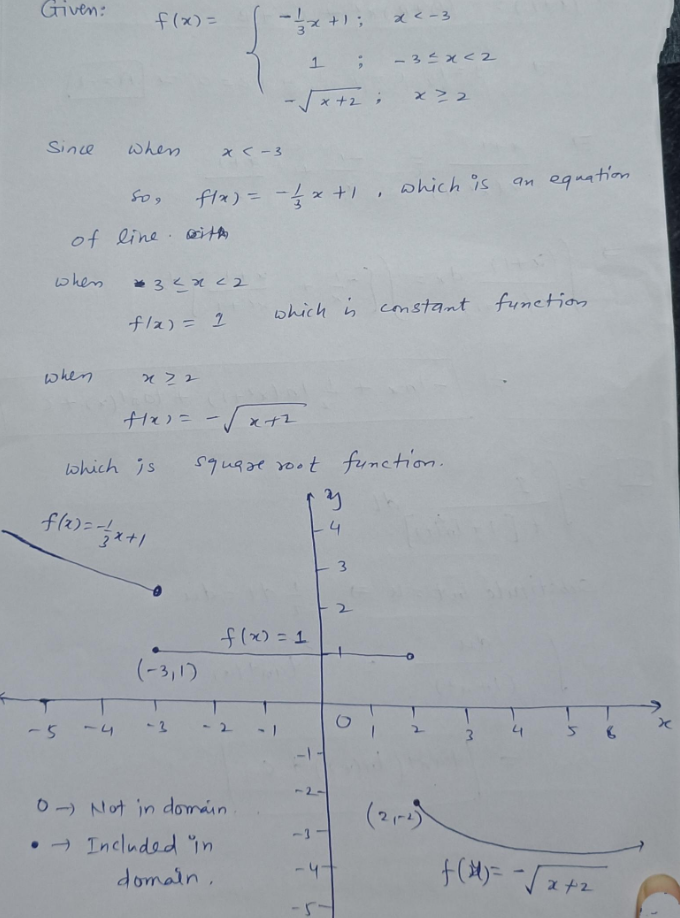 Given: f(x) = { -1/3 x + 1 ; x < -3
1 ; -3 ≤ x < 2
-√(x+2) ; x ≥ 2
Since when x < -3
so, f(x) = -1/3 x + 1 , which is an equation
of line.
when -3 ≤ x < 2
f(x) = 1 which is constant function
when x ≥ 2
f(x) = -√(x+2)
which is square root function.
y
f(x) = -1/3 x + 1
4
3
2
f(x) = 1 1
(-3,1)
-5 -4 -3 -2 -1 0 1 2 3 4 5 6 x
-1
-2
O → Not in domain. (2,-2)
-3
• → Included in
domain.
-4
f(x) = -√(x+2)
-5